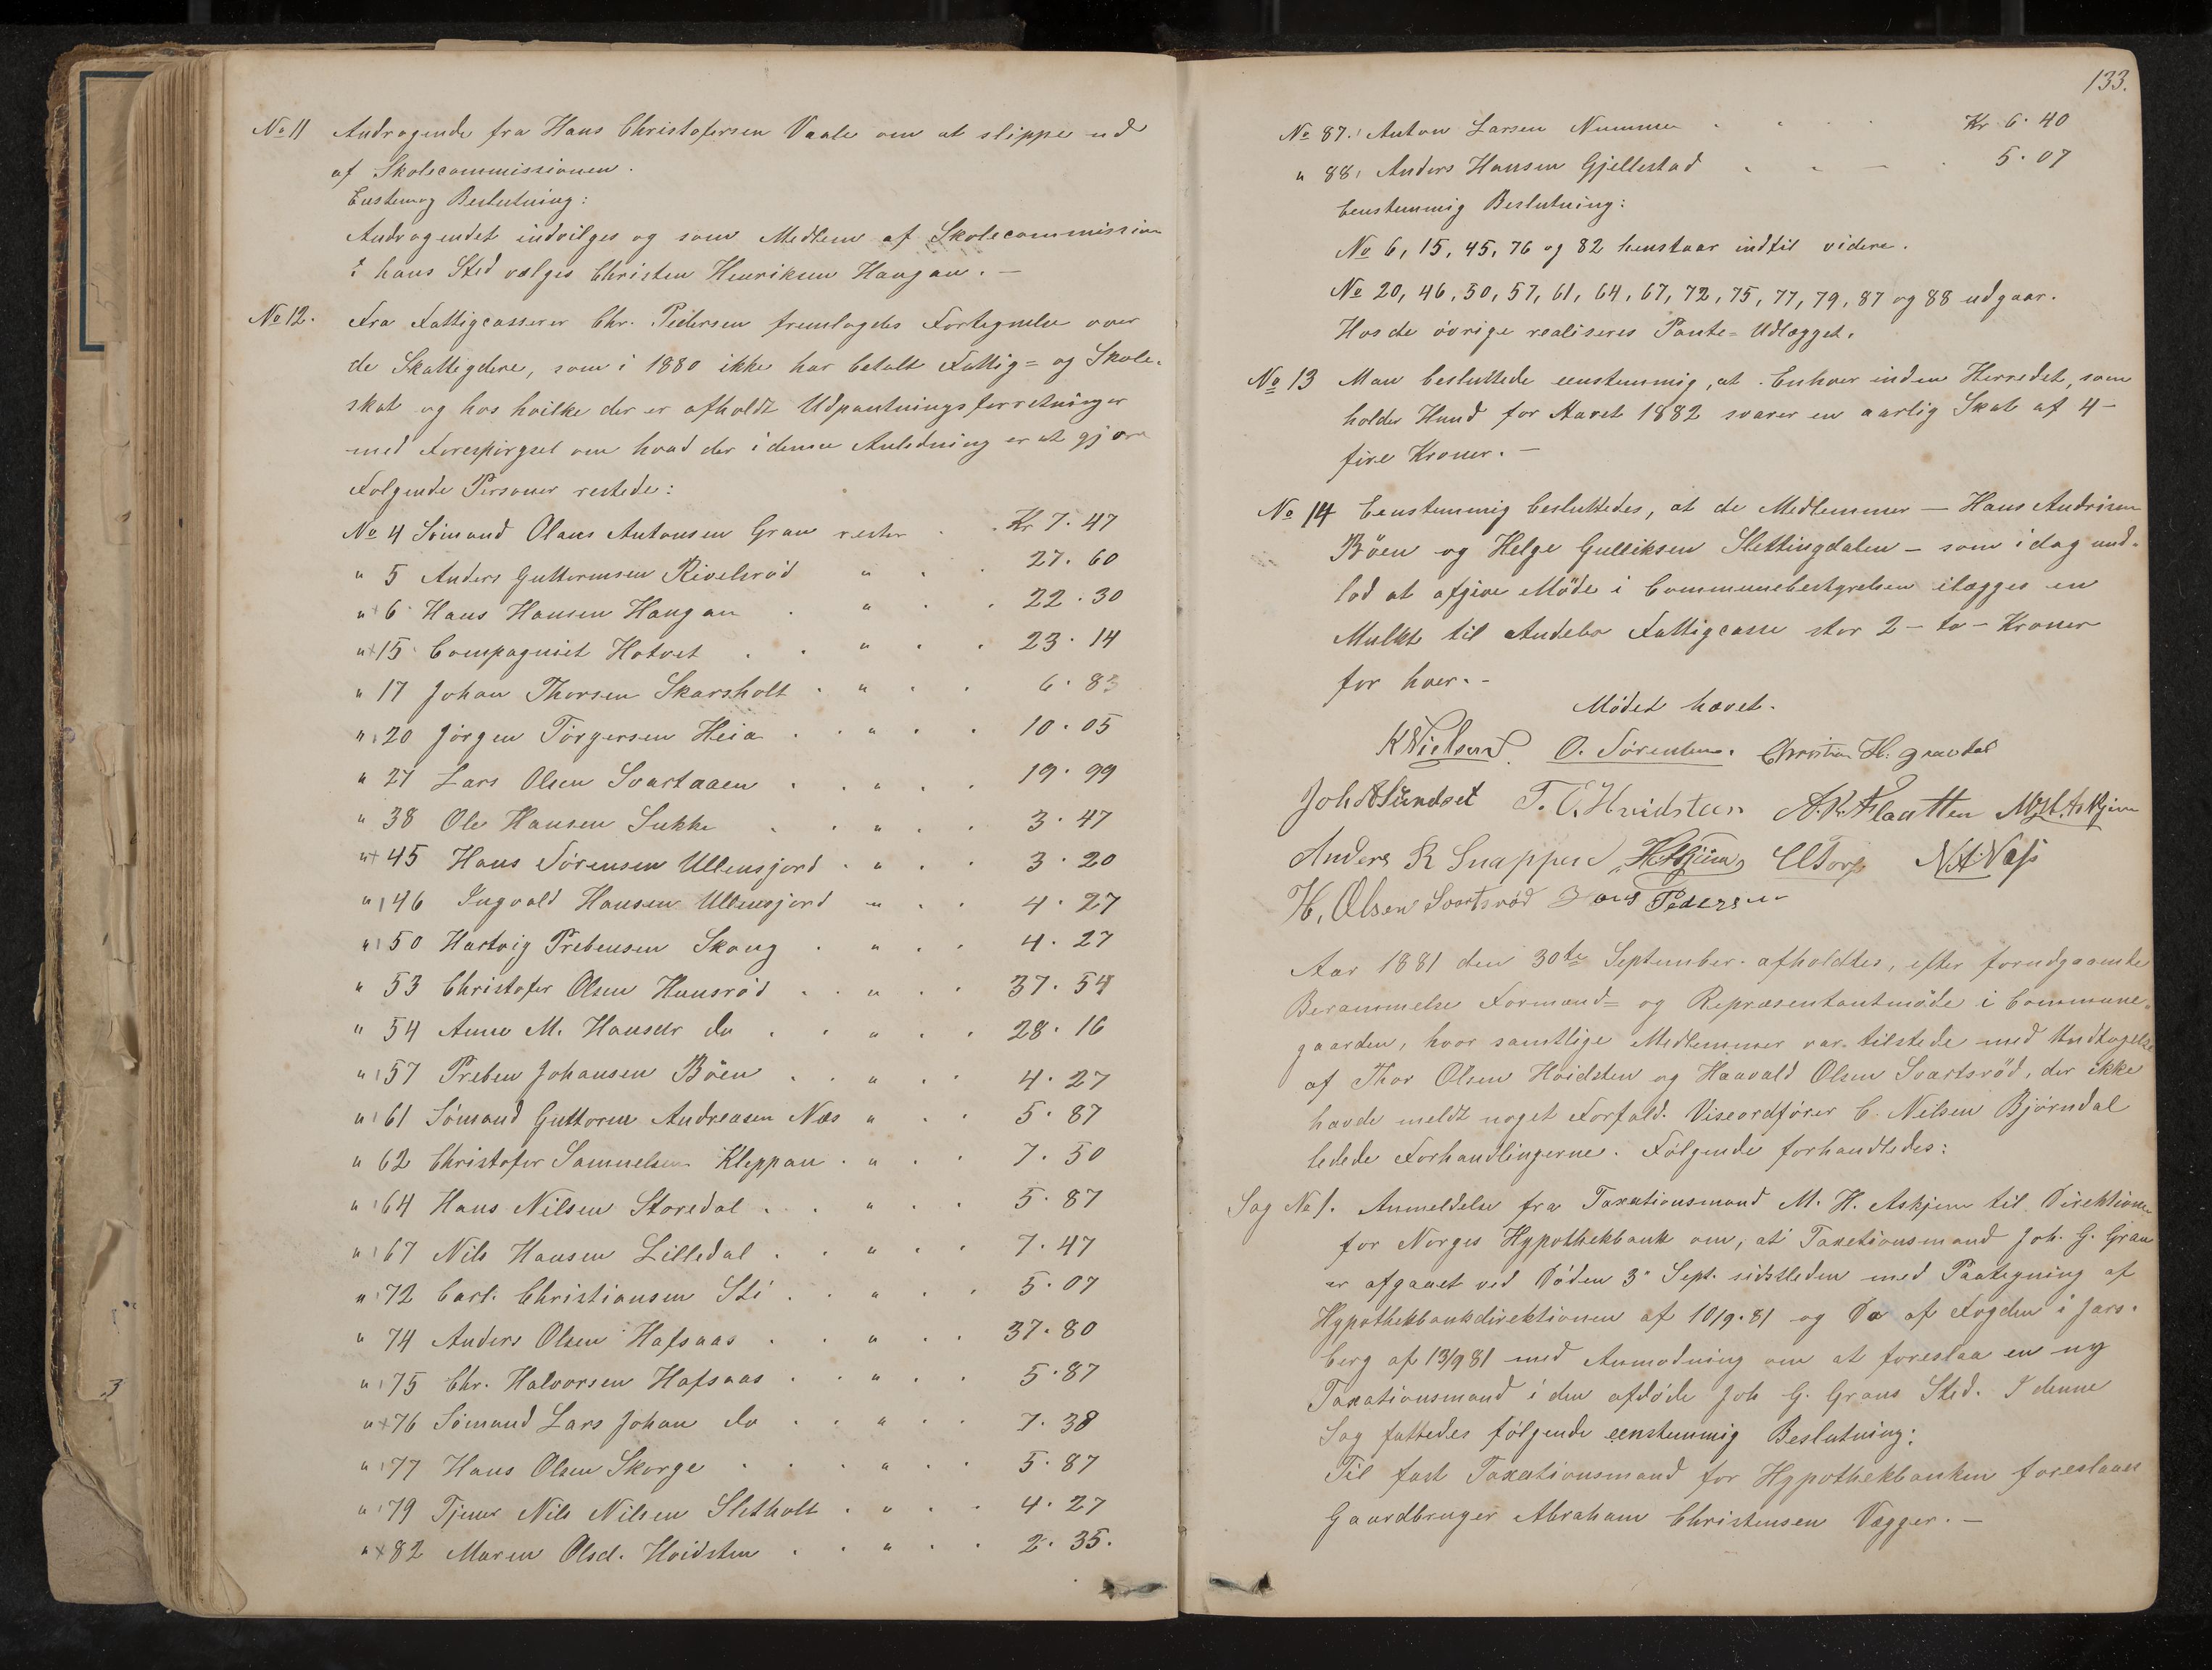 No 11 Andragende fra Hans Christofersen Vaale om at slippe ud
af Skolecommissionen.
Enstemig Beslutning:
Andragendet indvilges og som Medlem af Skolecommission
i hans Sted vælges Christen Henriksen Haugan. —
No 12. Fra Fattigcasserer Chr. Pedersen fremlagdes Fortegnelse over
de Skatteydere, som i 1880 ikke har betalt Fattig= og Skole-
skat og hos hvilke der er afholdt Udpantningsforretninger
med Forespörgsel om hvad der i denne Anledning er at gjøre
Følgende Personer restede:
No 4 Sömand Olaus Antonsen Gran rester . Kr 7. 47
" 5 Anders Guttormsen Rivelsröd " . . 27. 60
" + 6 Hans Hansen Haugan . " . . 22. 30
" + 15 Compagniet Hotvet . . " . . 23. 14
" 17 Johan Thorsen Skarsholt . " . . 6. 83
" 20 Jörgen Törgersen Heia . . " . . 10. 05
" 27 Lars Olsen Svartaaen . . " . . 19. 99
" 38 Ole Hansen Sukke . . " . . 3. 47
" + 45 Hans Sörensen Ullensjord . " . 3. 20
" 46 Ingvald Hansen Ullensjord " . . 4. 27
" 50 Hartvig Prebensen Skoug . " . . 4. 27
" 53 Christofer Olsen Hunsröd . . " . . 37. 54
" 54 Anne M. Hansdr do . . " . . 28. 16
" 57 Preben Johansen Böen . . " . . 4. 27
" 61 Sömand Guttorm Andreasen Næs " . . 5. 87
" 62 Christofer Samuelsen Kleppan . " . . 7. 50
" 64 Hans Nilsen Storedal . . " . . 5. 87
" 67 Nils Hansen Lilledal . . " . . 7. 47
" 72 Carl Christiansen Sti . . " . . 5. 07
" 74 Anders Olsen Hafsaas . . " . . 37. 80
" 75 Chr. Halvorsen Hafsaas . . " . . 5. 87
" + 76 Sömand Lars Johan do . . " . . 7. 38
" 77 Hans Olsen Skorge . . " . . 5. 87
" 79 Tjener Nils Nilsen Sletholt . " . . 4. 27
" + 82 Maren Olsd. Hvidsten . . " . . 2. 35.
133.
No 87. Anton Larsen Nummen . . . . Kr 6. 40
" 88. Anders Hansen Gjellestad . . . 5. 07
Eenstemmig Beslutning:
No 6, 15, 45, 76 og 82 henstaar indtil videre.
No 20, 46, 50, 57, 61, 64, 67, 72, 75, 77, 79, 87 og 88 udgaar.
Hos de övrige realiseres Pante= Udlægget.
No 13 Man besluttede eenstemmig, at Enhver inden Herredet, som
holder Hund for Aaret 1882 svarer en aarlig Skat af 4 –
fire Kroner. —
No 14 Eenstemmig besluttedes, at de Medlemmer — Hans Andrisen
Böen og Helge Gulliksen Slettingdalen — som idag und-
lod at afgive Möde i Communebestyrelsen ilægges en
Mulkt til Andebo Fattigcasse stor 2 – to – Kroner
for hver. –
Mödet hævet.
K Nielsen O. Sörensen. Christian H. Gravdal
Joh A Sundset T. O. Hvidsteen A. K. Flaatten M. H. Askjem
Anders R Snappen H Askjem C Torp N. A. Næss
H, Olsen Svartsröd Hans Pedersen
Aar 1881 den 30te September afholdtes, efter forudgaaende
Berammelse Formand= og Repræsentantmöde i Commune-
gaarden, hvor samtlige Medlemmer var tilstede med Undtagelse
af Thor Olsen Hvidsten og Haavald Olsen Svartsröd, der ikke
havde meldt noget Forfald. Viseordförer C. Nilsen Björndal
ledede Forhandlingerne. Fölgende forhandledes:
Sag No 1. Anmeldelse fra Taxationsmand M. H. Askjem til Direktionen
for Norges Hypothekbank om, at Taxetionsmand Joh. G. Gran
er afgaaet ved Döden 3" Sept. sidstleden med Paategning af
Hypothekbankdirektionen af 10/9. 81 og Do af Fogden i Jars-
berg af 13/9 81 med Anmodning om at foreslaa en ny
Taxationsmand i den afdöde Joh G. Grans Sted. I denne
Sag fattedes fölgende eenstemmig Beslutning:
Til fast Taxationsmand for Hypothekbanken foreslaaes
Gaardbruger Abraham Christensen Vegger. —